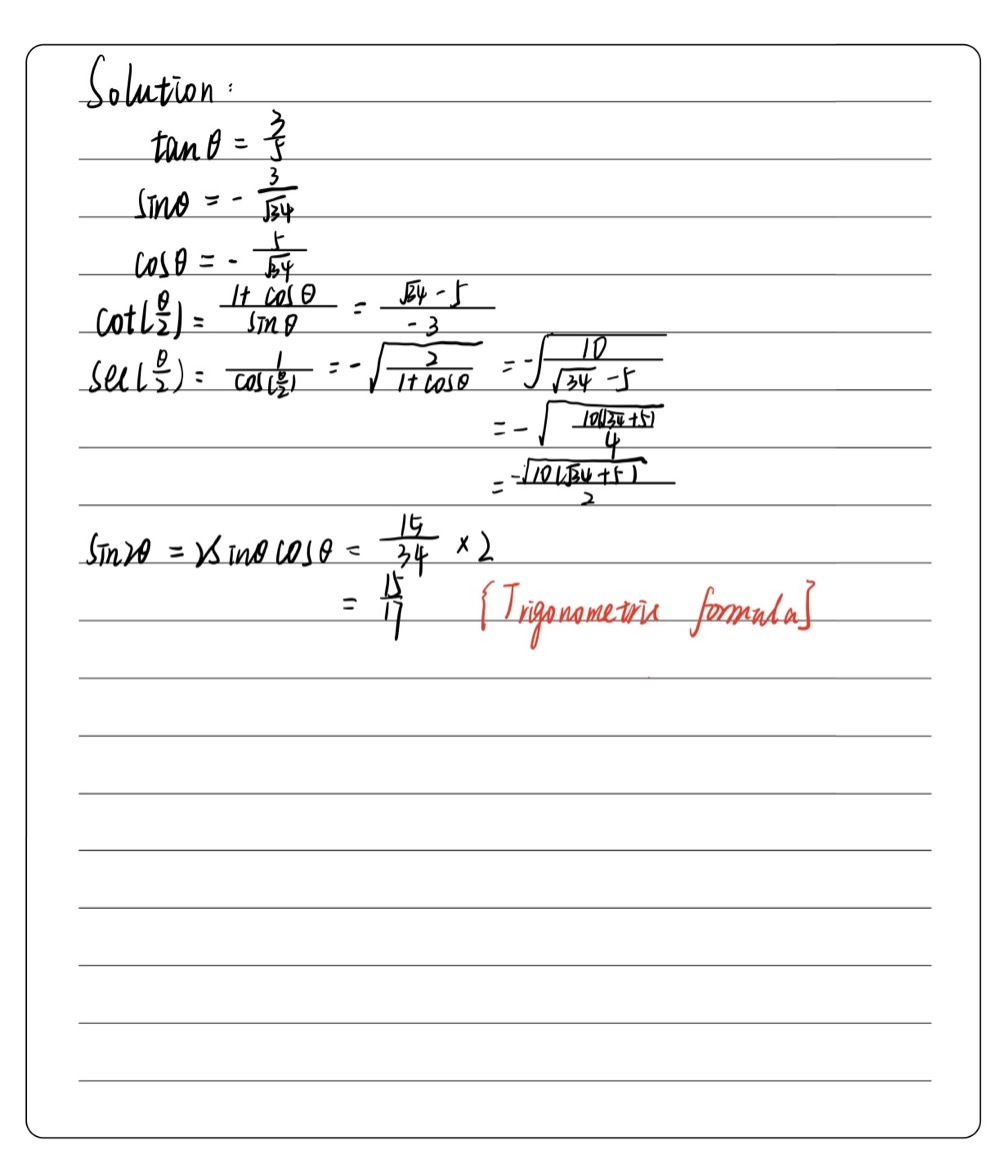 Solution:
tan θ = 3/5
sinθ = - 3/√34
cosθ = - 5/√34
cot(θ/2) = (1+ cosθ)/(sinθ) = (√34 - 5)/(-3)
sec(θ/2) = 1/(cos(θ/2)) = -√(2/(1+cosθ)) = -√(10/(√34 - 5))
= -√(10(√34+5)/4)
= -√(10(√34+5))/2
sin2θ = 2sinθ cosθ = 15/34 × 2
= 15/17 [Trigonometric formula]